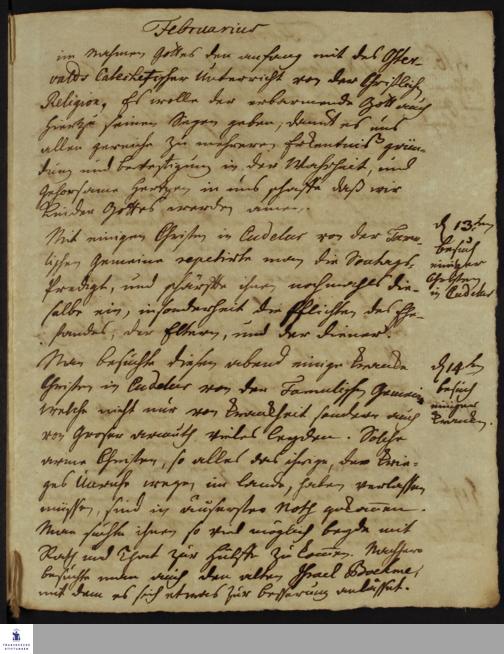 Februarius
im Nahmen Gottes den anfang mit des Oster-
valds Catechetischer Unterricht von der Christlichen
Religion. Es wolle der erbarmende Gott auch
hierzu seinen Seegen geben, damit es uns
allen gereiche zu mehreren Erkentniß grün-
dung und bevestigung in der Wahrheit, und
gehorsame Hertzen in uns schaffe daß wir
Kinder Gottes werden amen.
Mit einigen Christen in Cudelur von der Tamu-
lischen Gemeine repetirte man die Sontags-
Predigt, und schärffte ihnen nochmahls die-
selbe ein, insonderheit die Pflichten des Ehe-
standes, der Eltern, und der Diener.
d 13.ten
besuch
einiger
Christen
in Cudelur
Man besuchte diesen abend einige Krancke
Christen in Cudelur von der Tamulischen Gemeine
welche nicht nur von Kranckheit sondern auch
von Groser armuth vieles leyden. Solche
arme Christen, so alles das ihrige, der Krie-
ges Unruhe wegen im Lande, haben verlassen
müssen, sind in äusserster Noth gekommen.
Man suchte ihnen so viel möglich beyde mit
Rath und That zur Hülffe zu kommen. Nachhero
besuchte man auch den alten Israel Boekme,
mit dem es sich etwas zur besserung anlässet.
d 14 ten
besuch
einiger
Krancken.
FRANCKESCHE
STIFTUNGEN